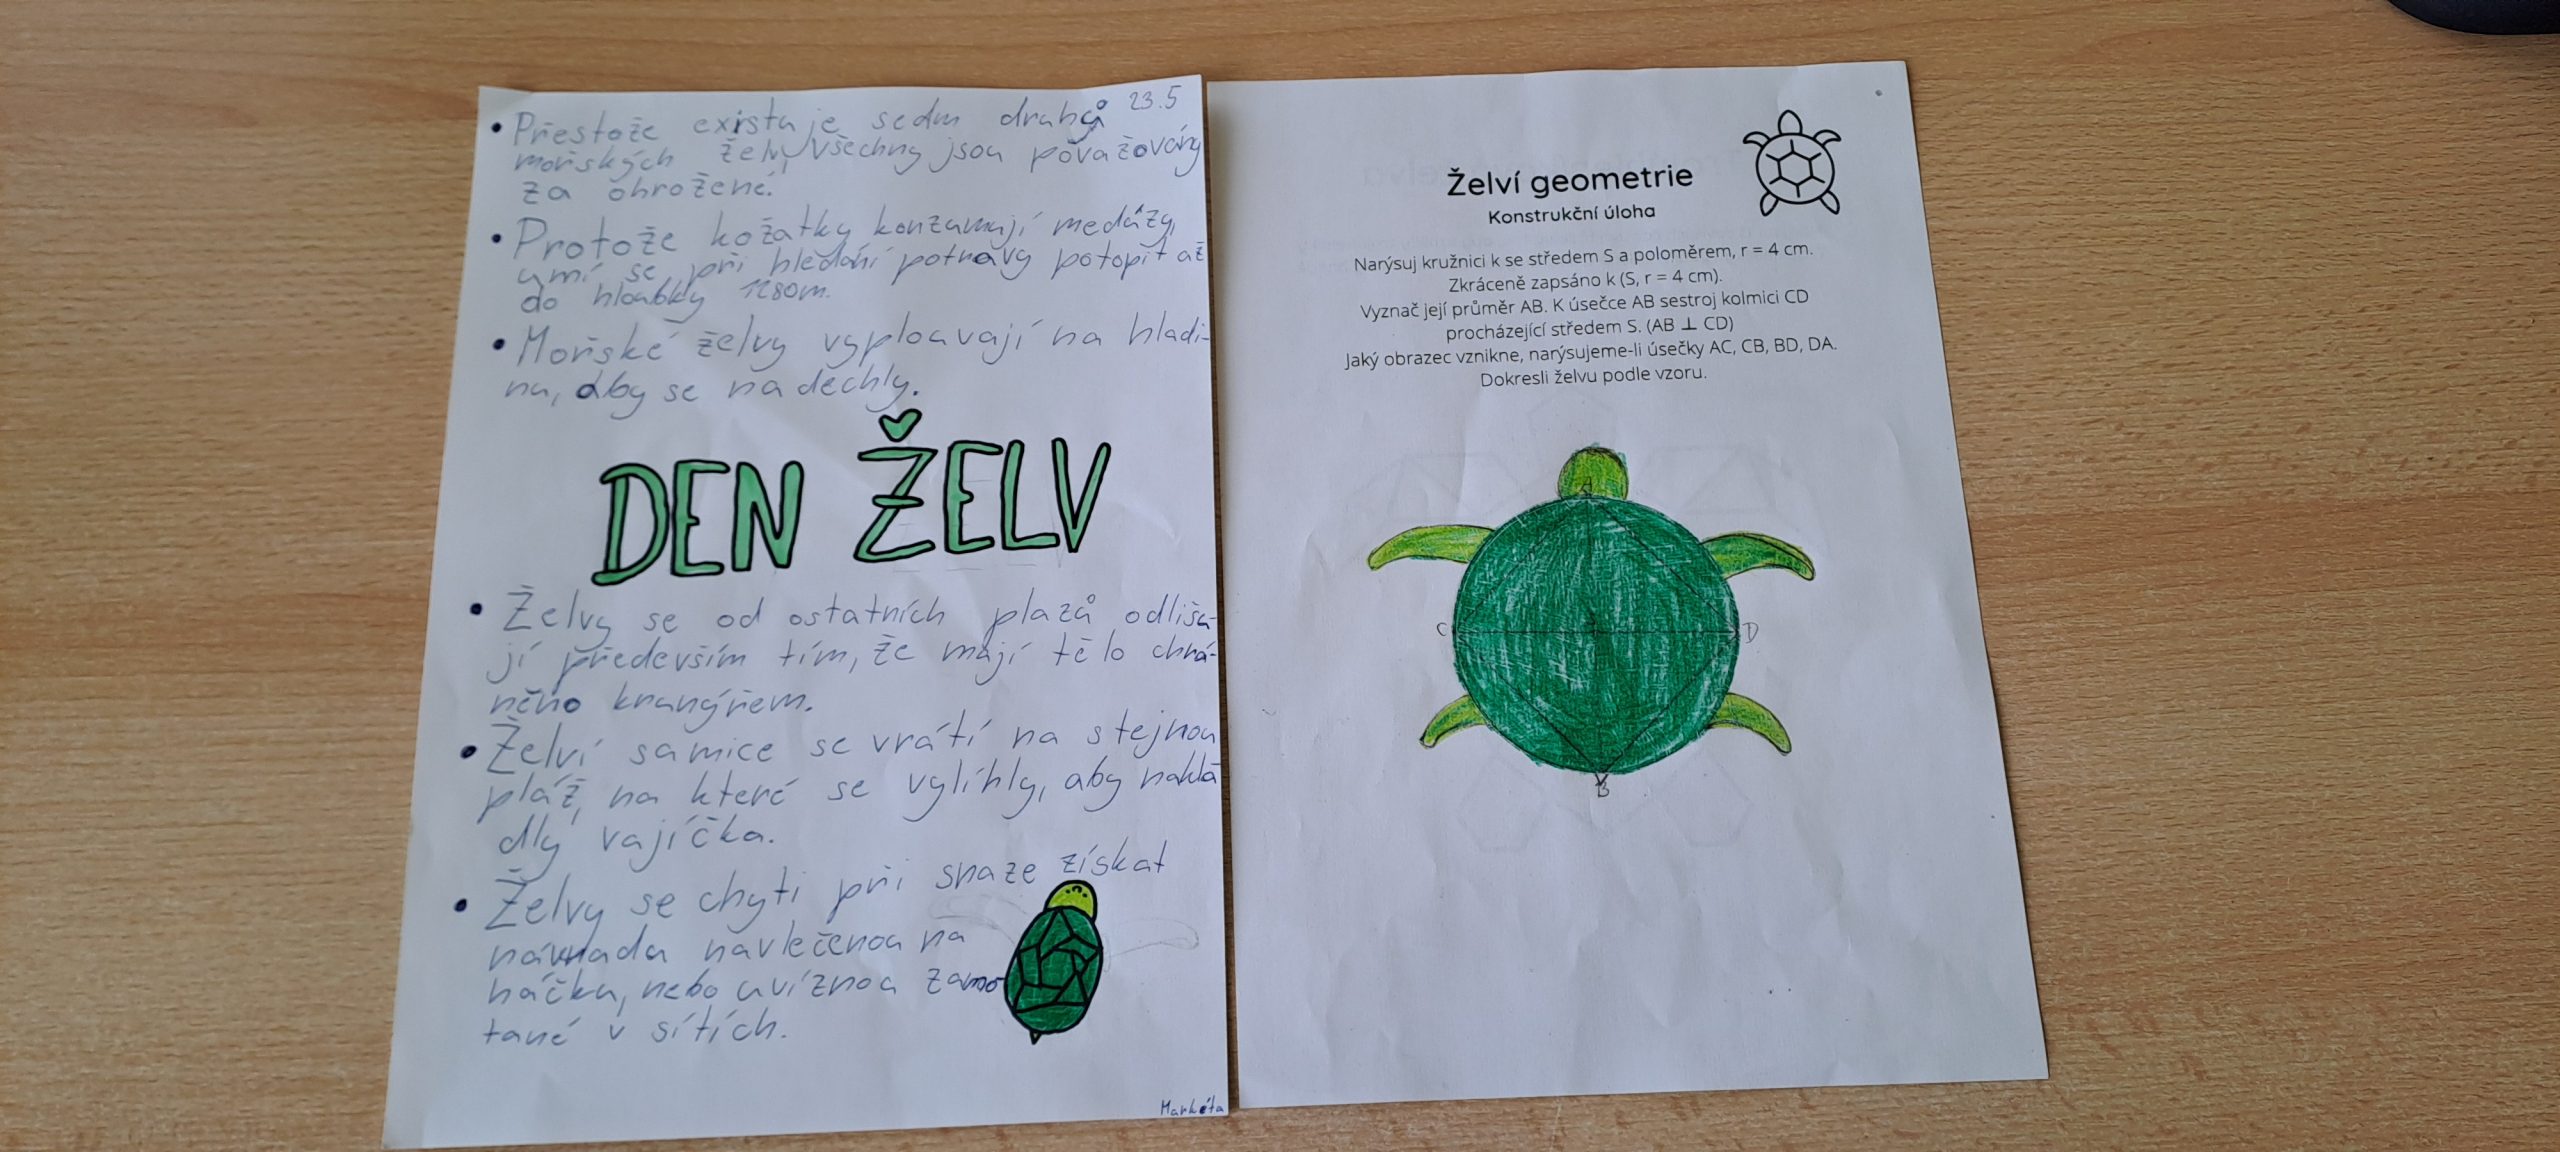 23.5
• Přestože existuje sedm druhů
mořských želv, všechny jsou považovány
za ohrožené.
• Protože kožatky konzumují medúzy,
umí se při hledání potravy potopit až
do hloubky 1280m.
• Mořské želvy vyplouvají na hladi-
nu, aby se nadechly.
DEN ŽELV
• Želvy se od ostatních plazů odlišu-
jí především tím, že mají tělo chrá-
něno krunýřem.
• Želví samice se vrátí na stejnou
pláž, na které se vylíhly, aby nakla
dly vajíčka.
• Želvy se chytí při snaze získat
návnadu navlečenou na
háčku, nebo uvíznou zamo
tané v sítích.
Markéta
Želví geometrie
Konstrukční úloha
Narýsuj kružnici k se středem S a poloměrem, r = 4 cm.
Zkráceně zapsáno k (S, r = 4 cm).
Vyznač její průměr AB. K úsečce AB sestroj kolmici CD
procházející středem S. (AB ⊥ CD)
Jaký obrazec vznikne, narýsujeme-li úsečky AC, CB, BD, DA.
Dokresli želvu podle vzoru.
A
C
D
B